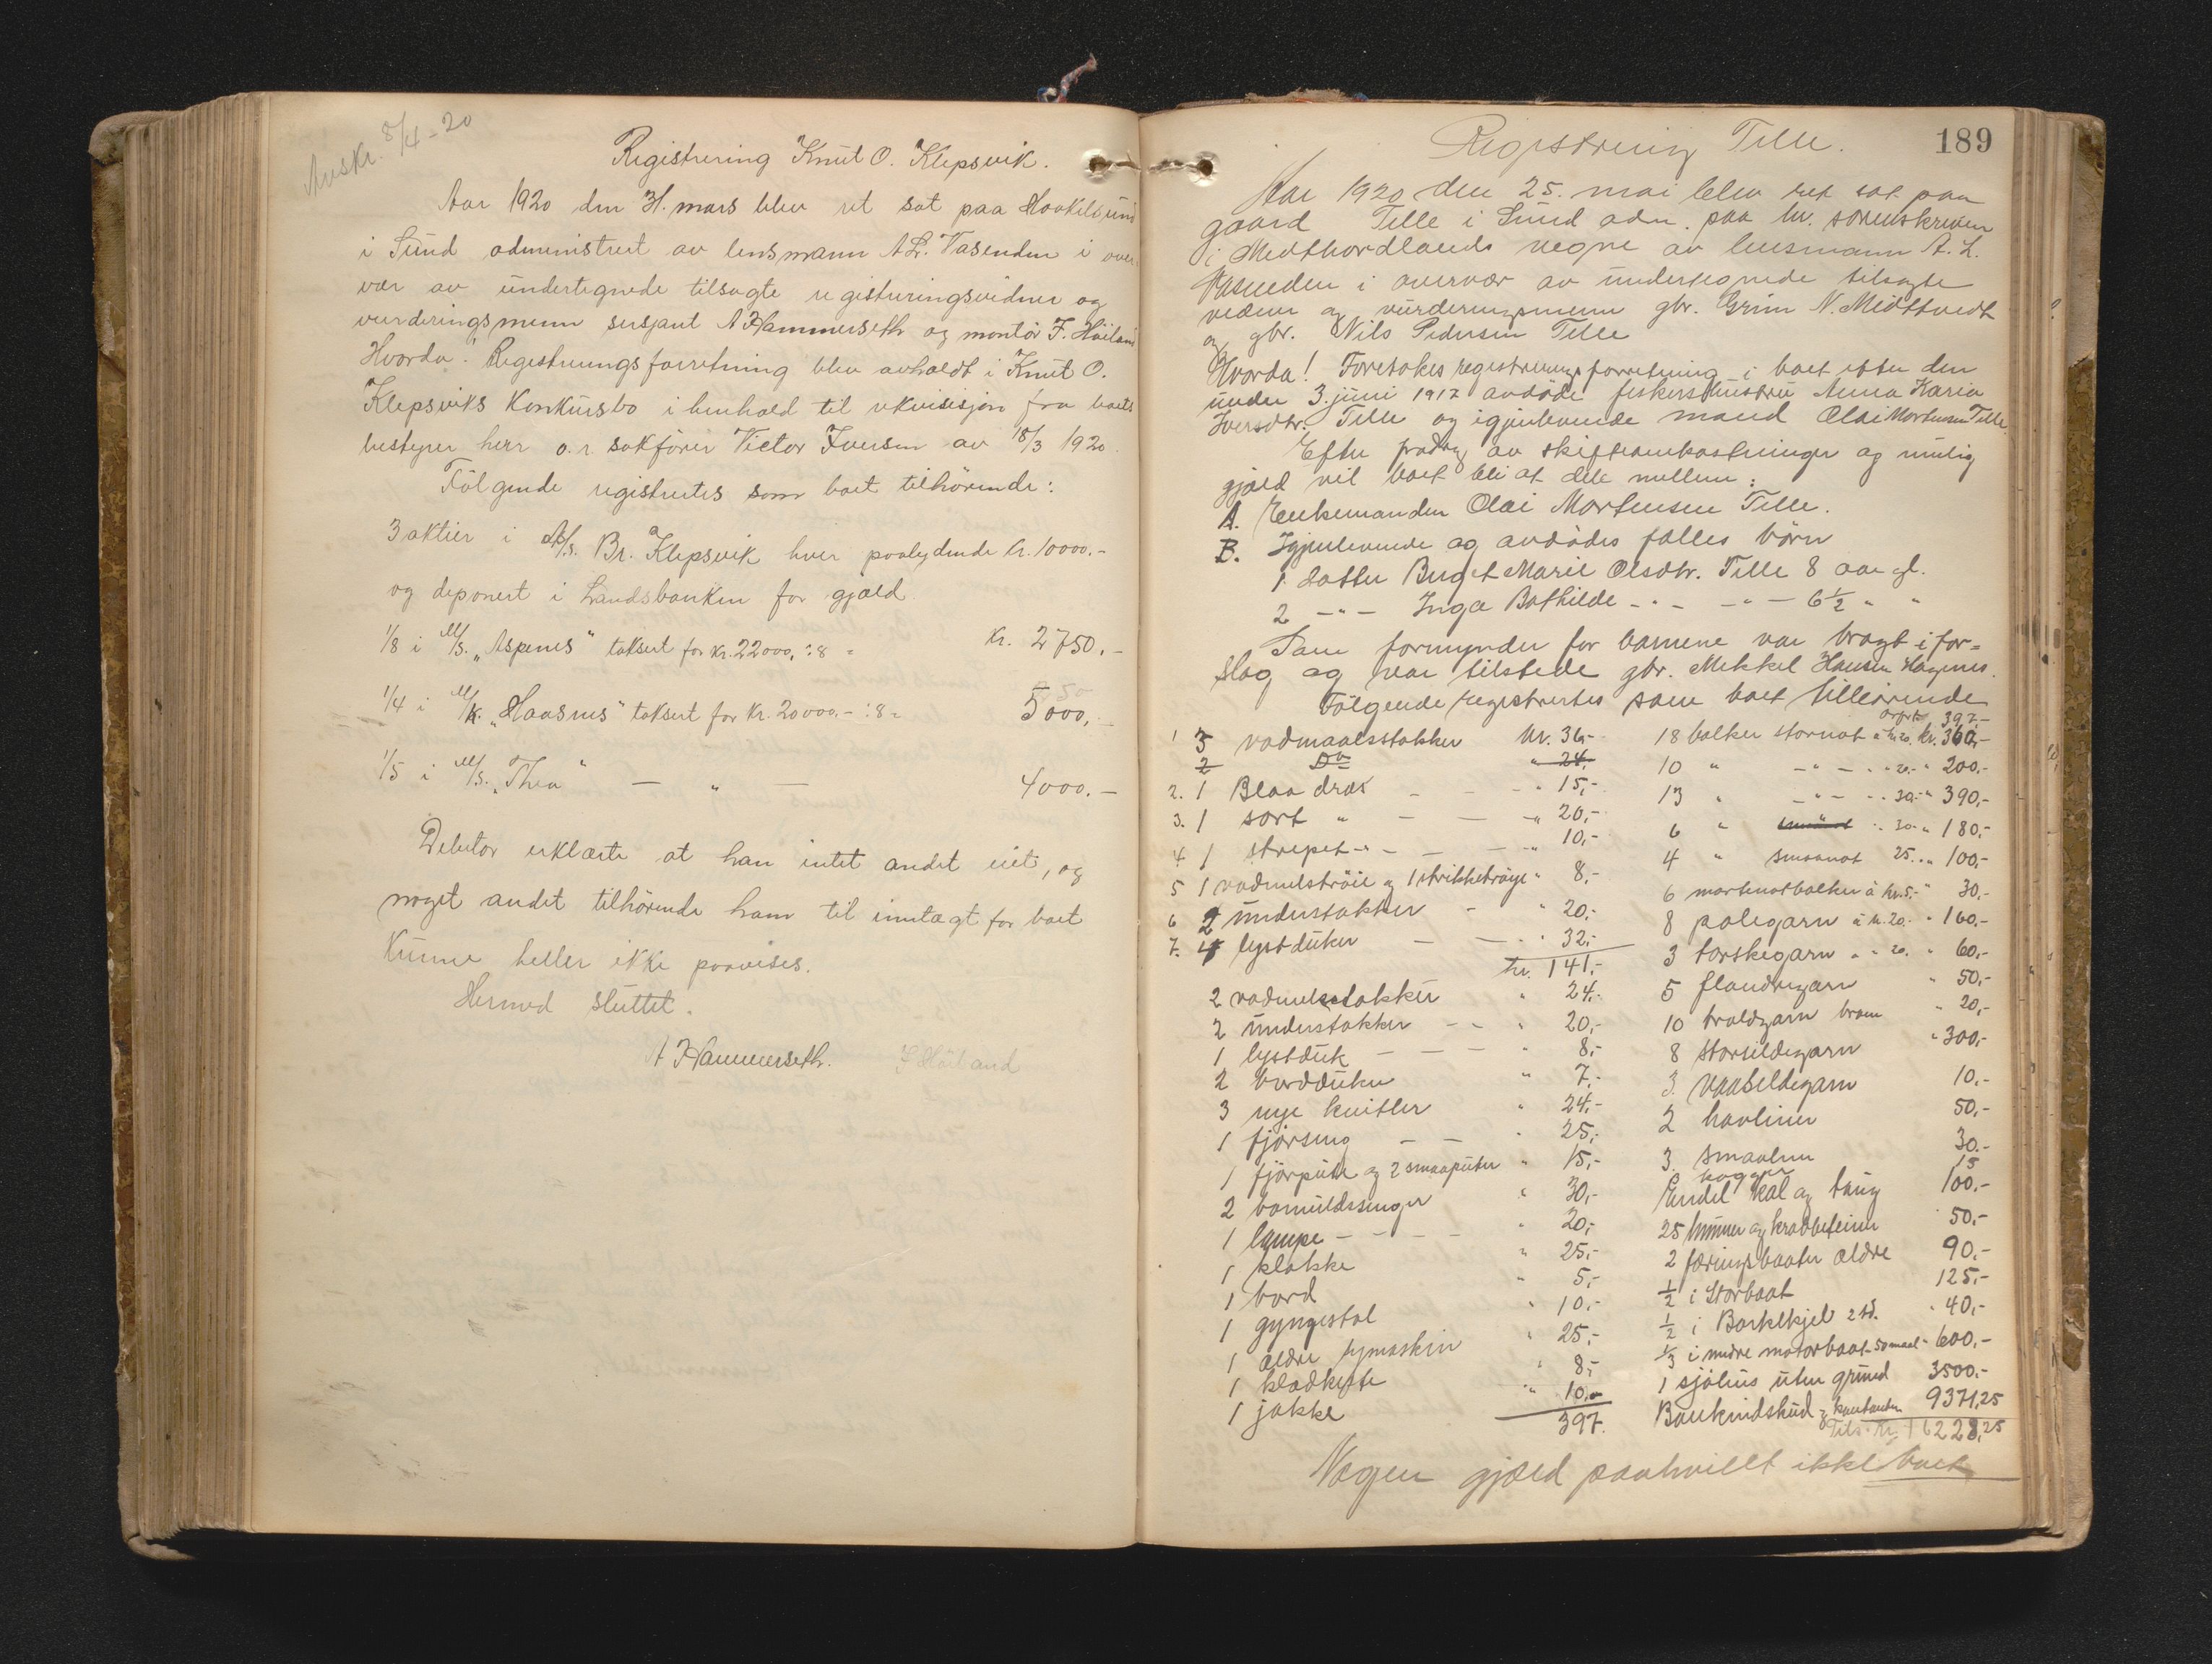 Avskr. 8/4-20
Registrering Knut O. Klepsvik.
Aar 1920 den 31. mars blev ret sat paa Haakelsund
i Sund administrert av lensmann A.L. Vasenden i over-
vær av undertegnede tilsagte registreringsvidner og
vurderingsmenn sersjant A Hammerseth og montör F. Höiland
Hvorda: Registreringsforretning blev avholdt i Knut O.
Klepsviks Konkursbo i henhold til rekvisisjon fra boets
bestyrer herr o.r. sakförer Victor Iversen av 18/3 1920.
Fölgende registrertes som boet tilhörende:
3 aktier i A/S. Br. Klepsvik hver paalydende kr. 10000.-
og deponert i Landsbanken for gjæld
1/8 i M/S. „Aspenes" taksert for kr. 22000,- : 8 = Kr. 2750.-
1/4 i M/K. „Haasnes" taksert for Kr. 20000.- : 8 = 5000,-
1/5 i M/S. „Thea" — „ — 4000.-
Debitor erklærte at han intet andet eiet, og
noget andet tilhörende ham til inntægt for boet
kunne heller ikke paavises.
Hermed sluttet.
A Hammerseth. F Höiland
189
Registrering Telle.
Aar 1920 den 25. mai blev ret sat paa
gaard Telle i Sund adm. paa hr. sorenskriveren
i Midthordlands vegne av lensmann A. L.
Vasenden i overvær av undertegnede tilsagte
vidner og vurderingsmenn gbr. Grim N. Midttvedt
og gbr. Nils Pedersen Telle
Hvorda! Foretokes registreringsforretning i boet efter den
under 3. juni 1917 avdöde fiskerkustru Anna Karia
Iversdtr. Telle og igjenlevende mand Olai Mortensen Telle.
Efter fradrag av skifteomkostninger og mulig
gjæld vil boet bli at dele mellem:
A. Enkemanden Olai Mortensen Telle.
B. Igjenlevende og avdödes fælles börn
1. datter Birgit Marie Olsdtr. Telle 8 aar gl.
2 -"- Inga Bathilde -"- -"- 6 1/2 " "
Som formynder for barnene var bragt i for-
slag og var tilstede gbr. Mikkel Hansen Hagenes.
Fölgende registrertes som boet tillörende
1 3 vadmaalsstakker kr. 36-
2 Do " 24.
2. 1 Blaa drak - - - " 15,-
3. 1 sort " - - - " 20,-
4 1 strepet -"- - - " 10,-
5 1 vadmelströie og 1 strikketröye " 8,-
6 2 understakker - " 20,-
7. 4 lystduker - - " 32,-
kr. 141,-
2 vadmelsstakker " 24,-
2 understakker - - " 20,-
1 lystduk - - - " 8,-
2 bordduker " 7,-
3 nye kvitler " 24,-
1 fjörseng - - " 25,-
1 fjörpute og 2 smaaputer " 15,-
2 bomuldssenger " 30,-
1 lampe - - - - " 20,-
1 klokke " 25,-
1 bord " 5,-
1 gyngestol " 10,-
1 ældre symaskin " 25,-
1 klædkiste " 8,-
1 jakke " 10,-
397.
Overf. 397.-
18 bolker stornot à kr. 20. kr. 360,-
10 " -"- - " 20.- " 200.-
13 " -"- - " 30.- " 390,-
6 " smaanot " 30- " 180,-
4 " smaanot 25. " 100,-
6 mortenotbolker à kr. 5,- " 30,-
8 palegarn à kr. 20.- " 160.-
3 torskegarn " " 20. " 60,-
5 flandregarn " 50,-
10 troldgarn " 20,-
8 storsildegarn " 300,-
3 vaarsildegarn 10.-
2 havliner 50,-
3 smaaliner 30.-
15
Endel kal og taug 100.-
25 hummer og krabbeteiner 50,-
2 færingsbaater ældre 90.-
1/2 i Storbaat 125,-
1/2 i Barkekjel 2 td. " 40,-
1/3 i mindre motorbaat 600,-
1 sjöhus uten grund 3500.-
Bankindskud og kontanter 9371,25
Tils. Kr. 16228,25
Nogen gjæld paahvilet ikke boet